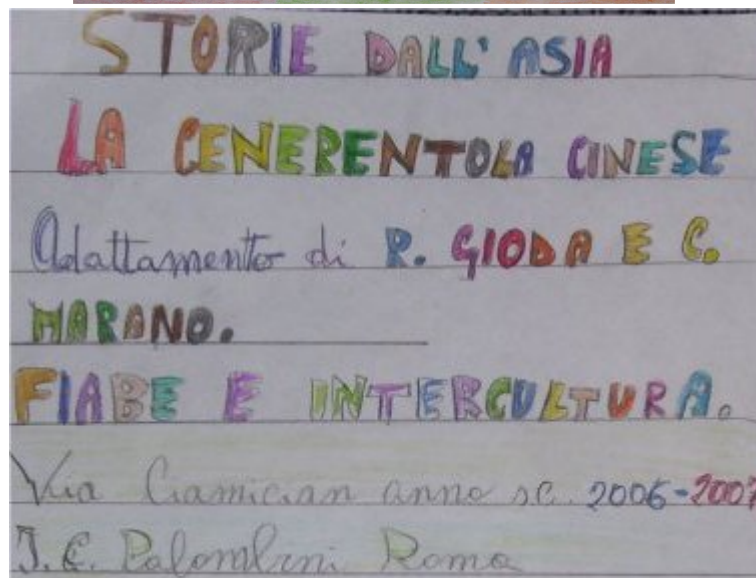 STORIE DALL'ASIA
LA CENERENTOLA CINESE
Adattamento di R. GIODA E C.
MARANO.
FIABE E INTERCULTURA.
Via Ciamician anno sc. 2006-2007
I.C. Palombini Roma